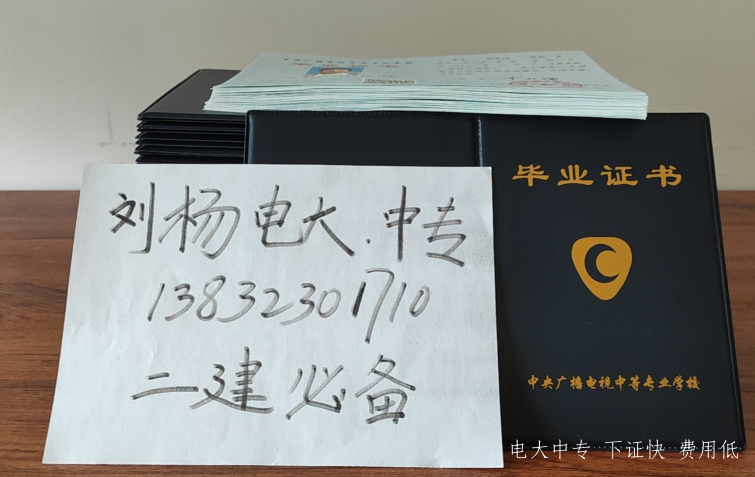 刘杨电大.中专
13832301710
二建必备
毕业证书
中央广播电视中等专业学校
电大中专 下证快 费用低